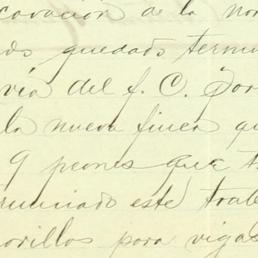 cavación de la no
os quedado termi
vía del f. C. Tor
la nueva finca qu
9 peones que t
unciado este trab
orillos para vigas